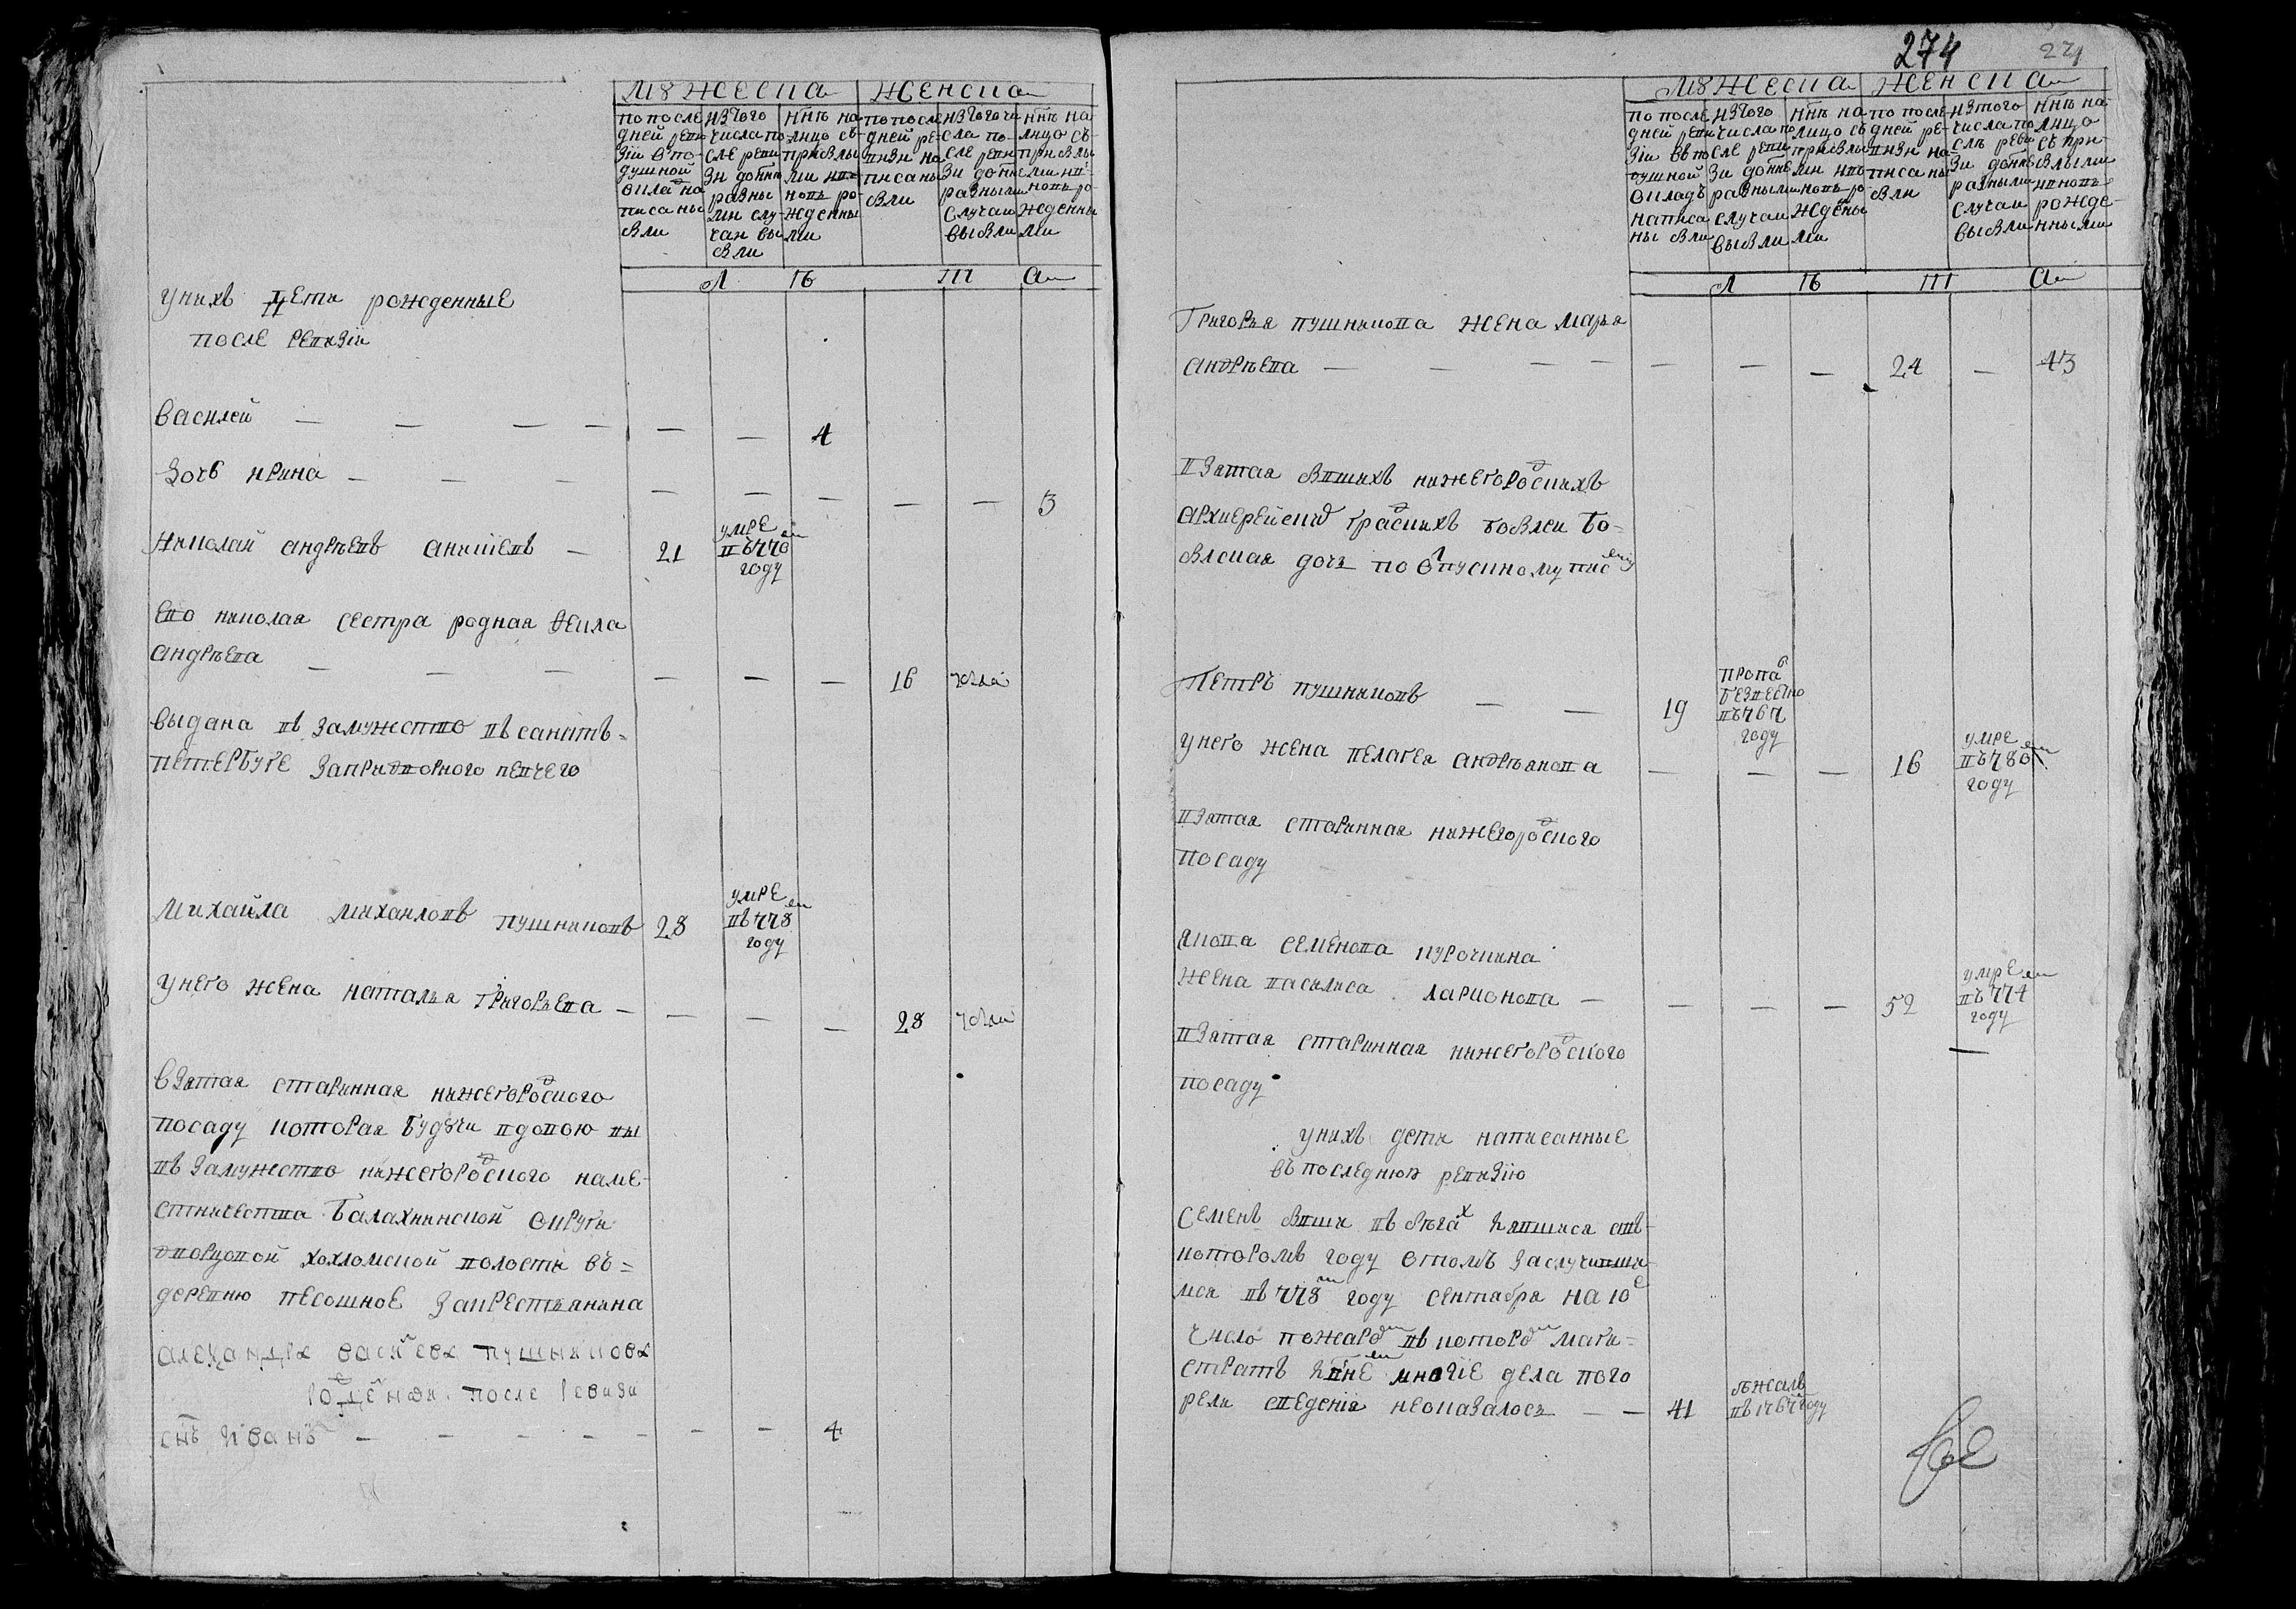 мꙋжеска женска
по последней ревизіи в подушной окладъ написаны были
изъ того числа после ревизи до ннѣ разными случаи выбыли
ннѣ на лицо съ прибылыми и вновь рожденными
по последней ревизи написаны были
изъ того числа после ревизи до ннѣ разными случаи выбыли
ннѣ на лицо съ прибылыми и вновь рожденными
Л Ѣ Т А
у нихъ дети рожденные
после ревизіи
василей — — — — — — 4
дочь ирина — — — — — — — — 3
николай андрѣевъ аникиевъ — 21 умре въ 770 ем году
ево николая сестра родная фекла
андрѣева — — — — — — 16
выдана въ замужство въ санктъ-
петербурге за придворного певчего
михайла михаиловъ пушниковъ 28 умре въ 778 ем году
у него жена наталья григорьева — — — — 28
взятая старинная нижегородского
посаду которая будучи вдовою вы
въ замужство нижегородского наме-
стничества балахнинской округи
дворцовой хохломской волости въ=
деревню песошное за крестьянина
александръ васильевъ пушниковъ
рожденои после ревизи
снъ иванъ — — — — — — — 4
274
274
мꙋжеска женска
по последней ревизіи въ подушной окладъ написаны были
изъ того числа после ревизи до ннѣ разными случаи выбыли
ннѣ на лицо съ прибылыми и вновь рождеными
по последней ревизи написаны были
изъ того числа послѣ ревизи до ннѣ разными случаи выбыли
ннѣ на лицо съ прибылыми и вновь рожденными
Л Ѣ Т А
Григорья пушникова жена марья
андрѣева — — — — — — — 24 — 43
взятая бывшихъ нижегородскихъ
архиерейских градскихъ бобылеи бо=
быльская дочь по отпускному писму
Петръ пушниковъ — — 19 пропал безвестно въ 767 году
у него жена пелагея андрѣянова — — — 16 умре въ 780 ем году
взятая старинная нижегородского
посаду
якова семенова курочкина
жена василиса ларионова — — — — 52 умре въ 774 ем году
взятая старинная нижегородского
посаду
у нихъ дети написанные
въ последнюю ревизію
семенъ бывши въ бѣгах явился а въ
которомъ году о томъ за случившим
мся въ 778 м году сентября на 10 е
число пожаром въ котором маги=
стратѣ многіе дела пого
рели сведения не оказалось — — 41 бѣжалъ въ 1767 году